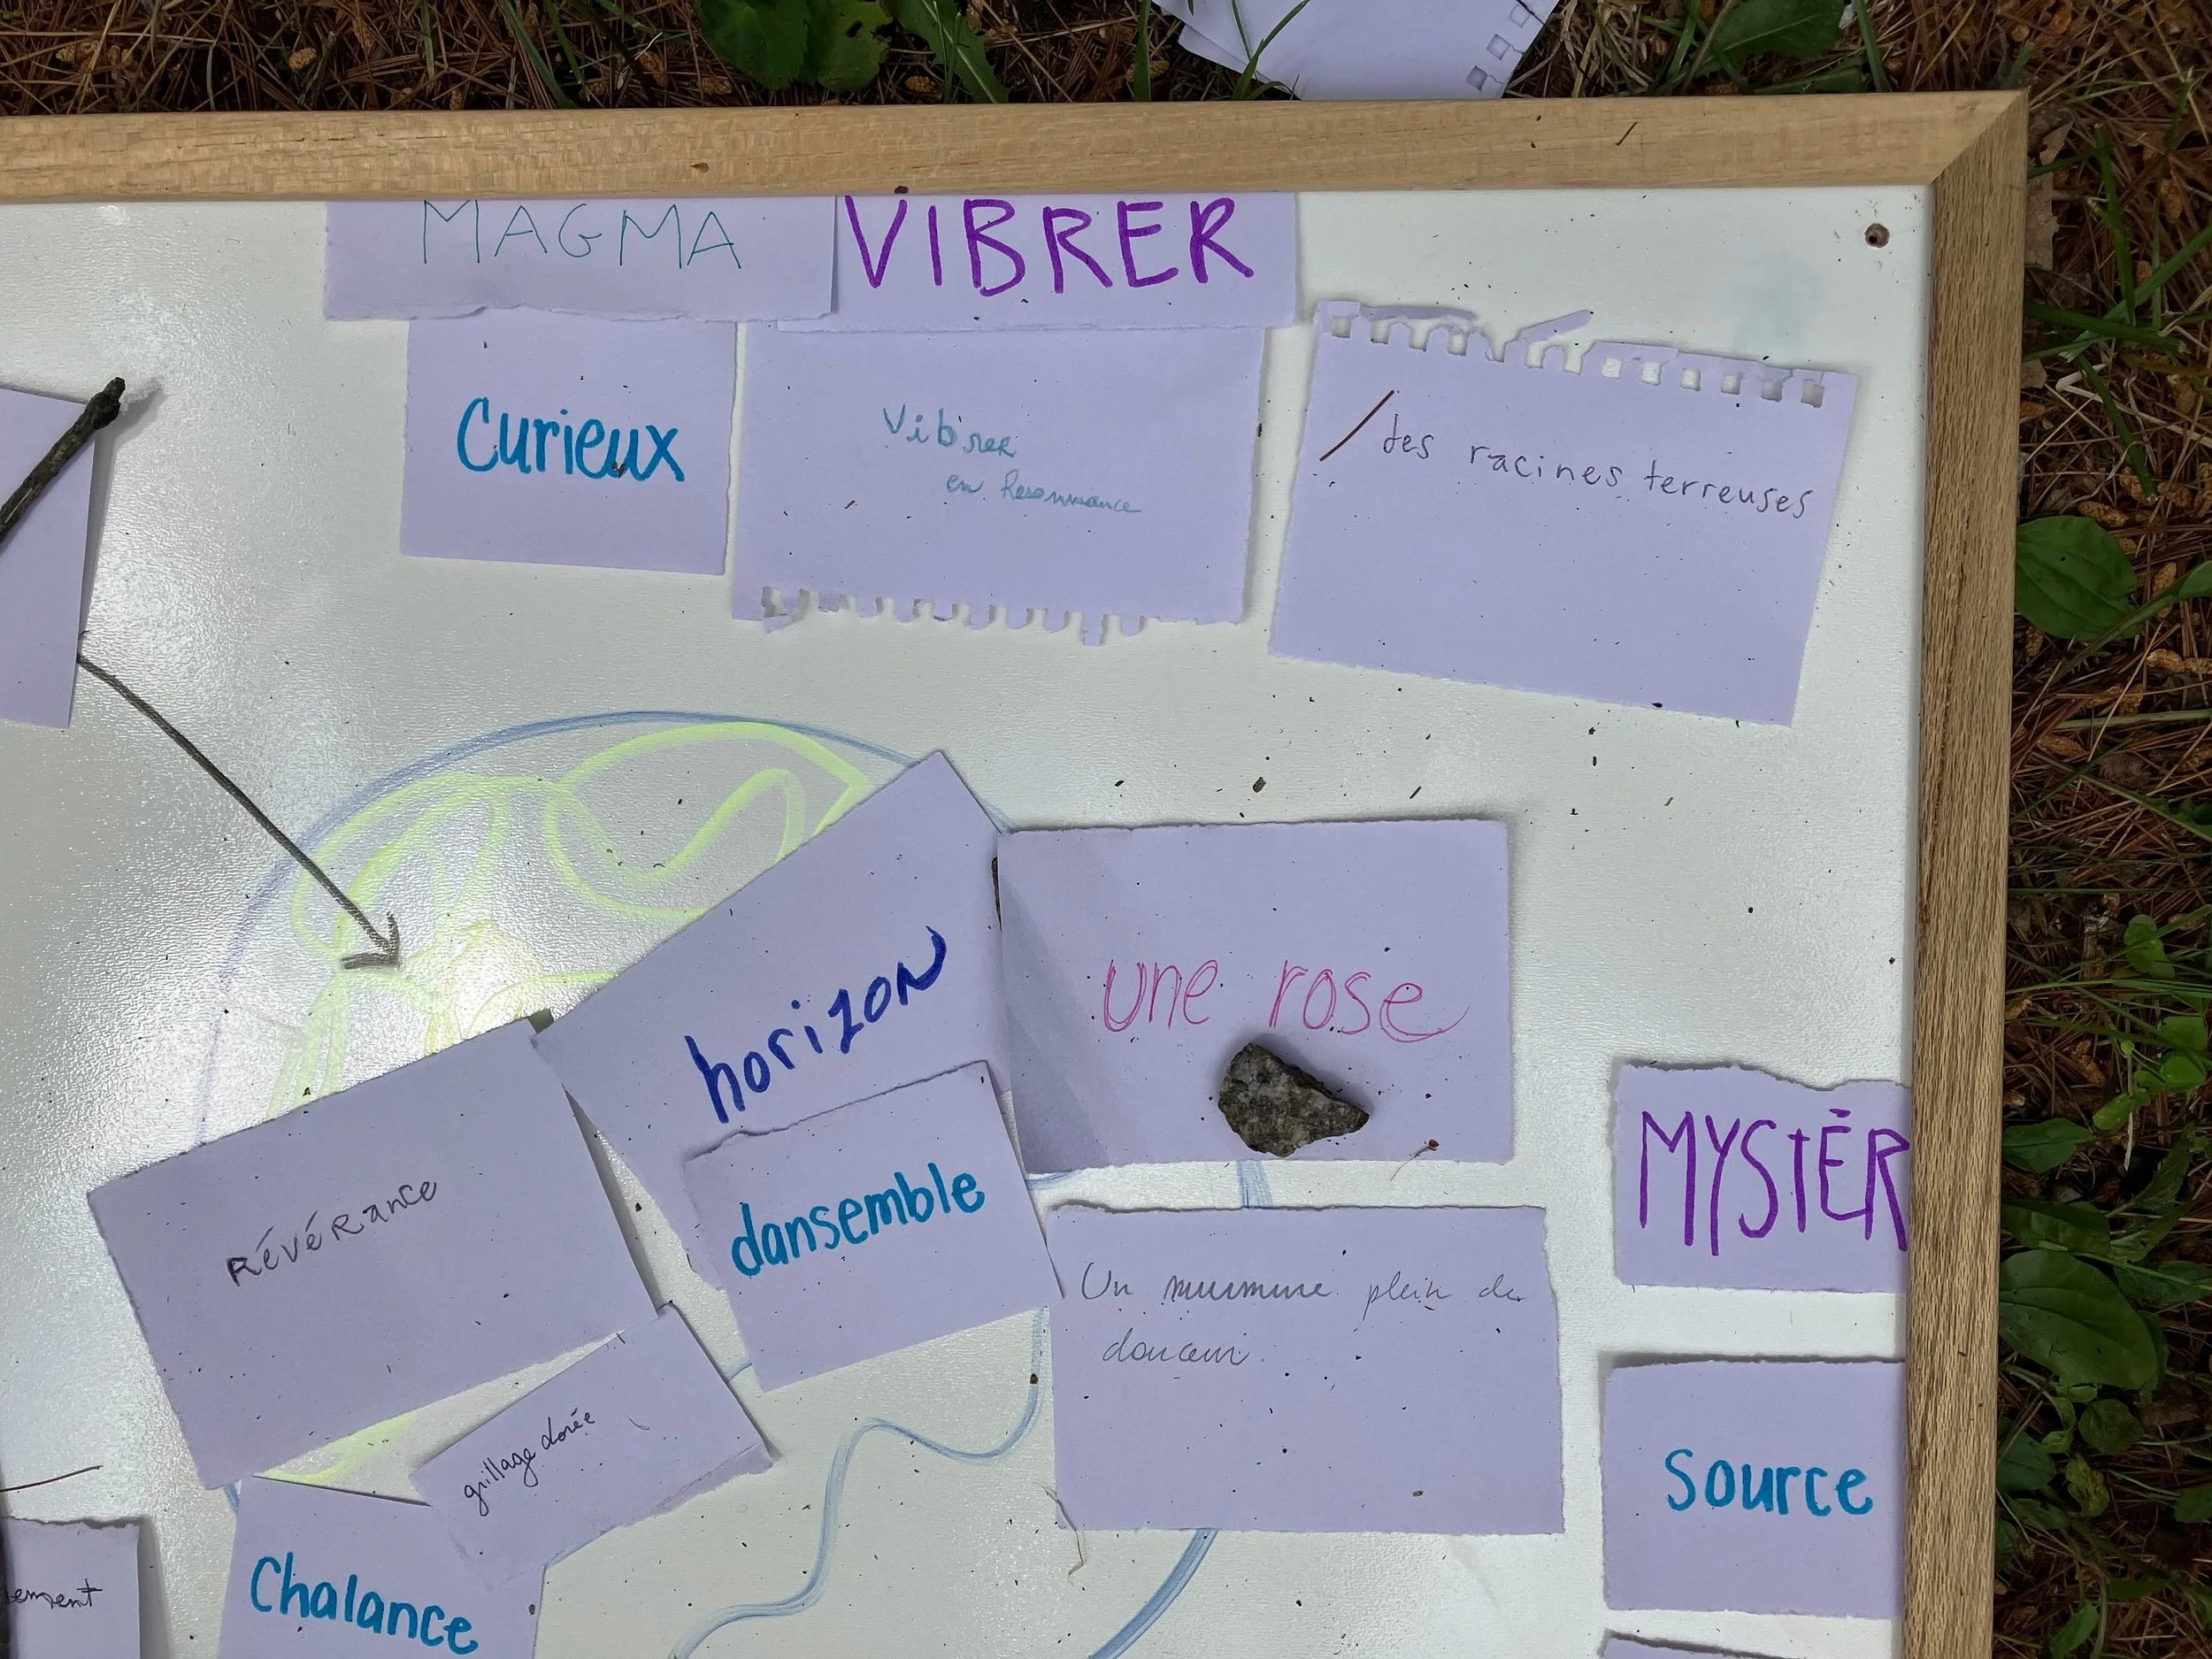 MAGMA
VIBRER
Curieux
Vibrer
en Resonnance
des racines terreuses
horizon
une rose
MYSTÈR
RÉVÉRance
dansemble
Un murmure plein de
douceur.
grillage dorée
source
Chalance
ement